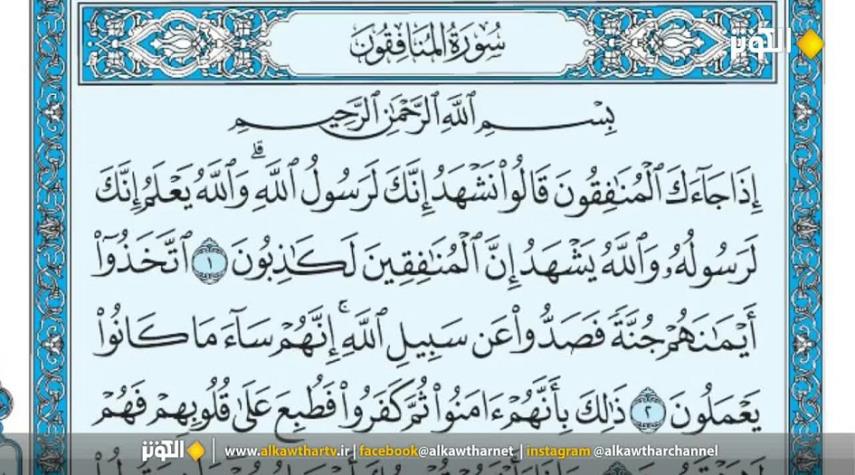 سُورَةُ المُنَافِقُونَ
الكوثر
بِسْمِ ٱللَّهِ ٱلرَّحْمَٰنِ ٱلرَّحِيمِ
إِذَا جَآءَكَ ٱلْمُنَٰفِقُونَ قَالُوا۟ نَشْهَدُ إِنَّكَ لَرَسُولُ ٱللَّهِ ۗ وَٱللَّهُ يَعْلَمُ إِنَّكَ
لَرَسُولُهُۥ وَٱللَّهُ يَشْهَدُ إِنَّ ٱلْمُنَٰفِقِينَ لَكَٰذِبُونَ ١ ٱتَّخَذُوٓا۟
أَيْمَٰنَهُمْ جُنَّةً فَصَدُّوا۟ عَن سَبِيلِ ٱللَّهِ ۚ إِنَّهُمْ سَآءَ مَا كَانُوا۟
يَعْمَلُونَ ٢ ذَٰلِكَ بِأَنَّهُمْ ءَامَنُوا۟ ثُمَّ كَفَرُوا۟ فَطُبِعَ عَلَىٰ قُلُوبِهِمْ فَهُمْ
الكوثر www.alkawthartv.ir | facebook@alkawtharnet | instagram @alkawtharchannel